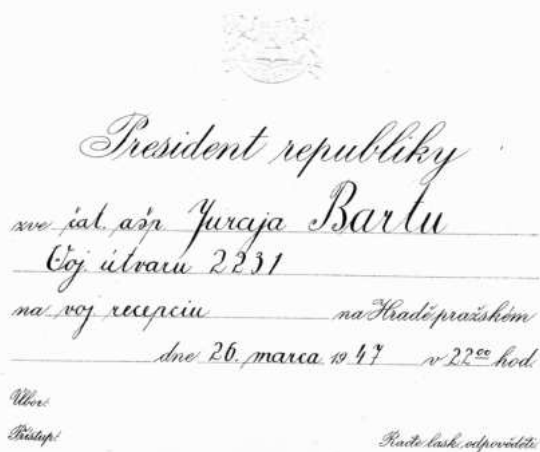 President republiky
zve čat. ašp. Juraja Bartu
Voj. útvaru 2231
na voj. recepciu na Hradě pražském
dne 26. marca 1947 v 22⁰⁰ hod.
Úbor:
Přístup:
Račte lask. odpověděti